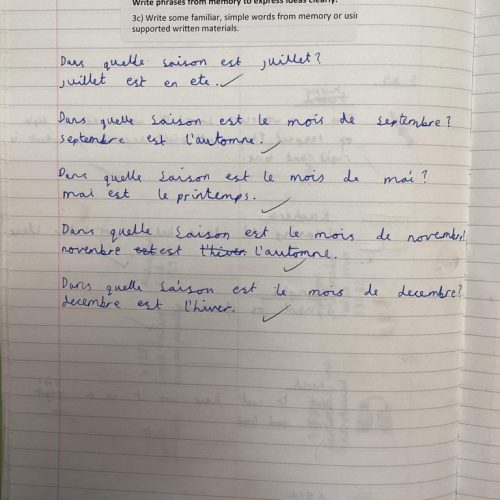 Write phrases from memory to express ideas clearly.
3c) Write some familiar, simple words from memory or usin
supported written materials.
Dans quelle saison est juillet?
juillet est en ete.
Dans quelle saison est le mois de septembre?
septembre est l'automne.
Dans quelle saison est le mois de mai?
mai est le printemps.
Dans quelle saison est le mois de novembre?
novenbre est est l'hiver l'automne.
Dans quelle saison est le mois de decembre?
decembre est l'hiver.